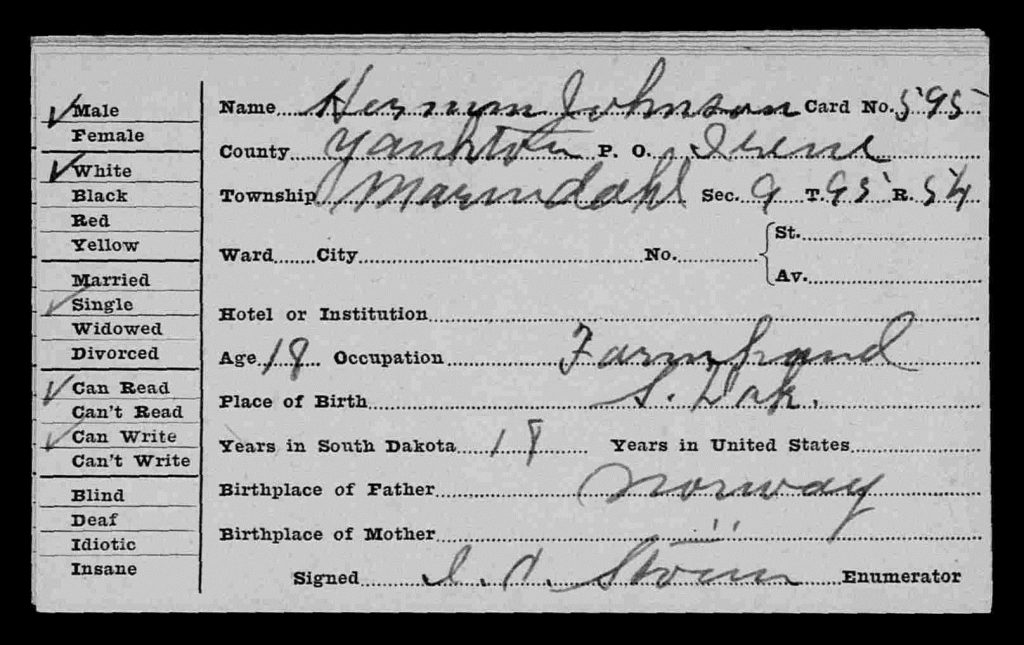 Male
Female
White
Black
Red
Yellow
Married
Single
Widowed
Divorced
Can Read
Can't Read
Can Write
Can't Write
Blind
Deaf
Idiotic
Insane
Name Herman Johnson Card No. 595
County Yankton P. O. Irene
Township Marindahl Sec. 9 T. 95 R. 54
Ward City No. St.
Av.
Hotel or Institution
Age 18 Occupation Farmhand
Place of Birth S. Dak.
Years in South Dakota 18 Years in United States
Birthplace of Father Norway
Birthplace of Mother "
Signed Enumerator